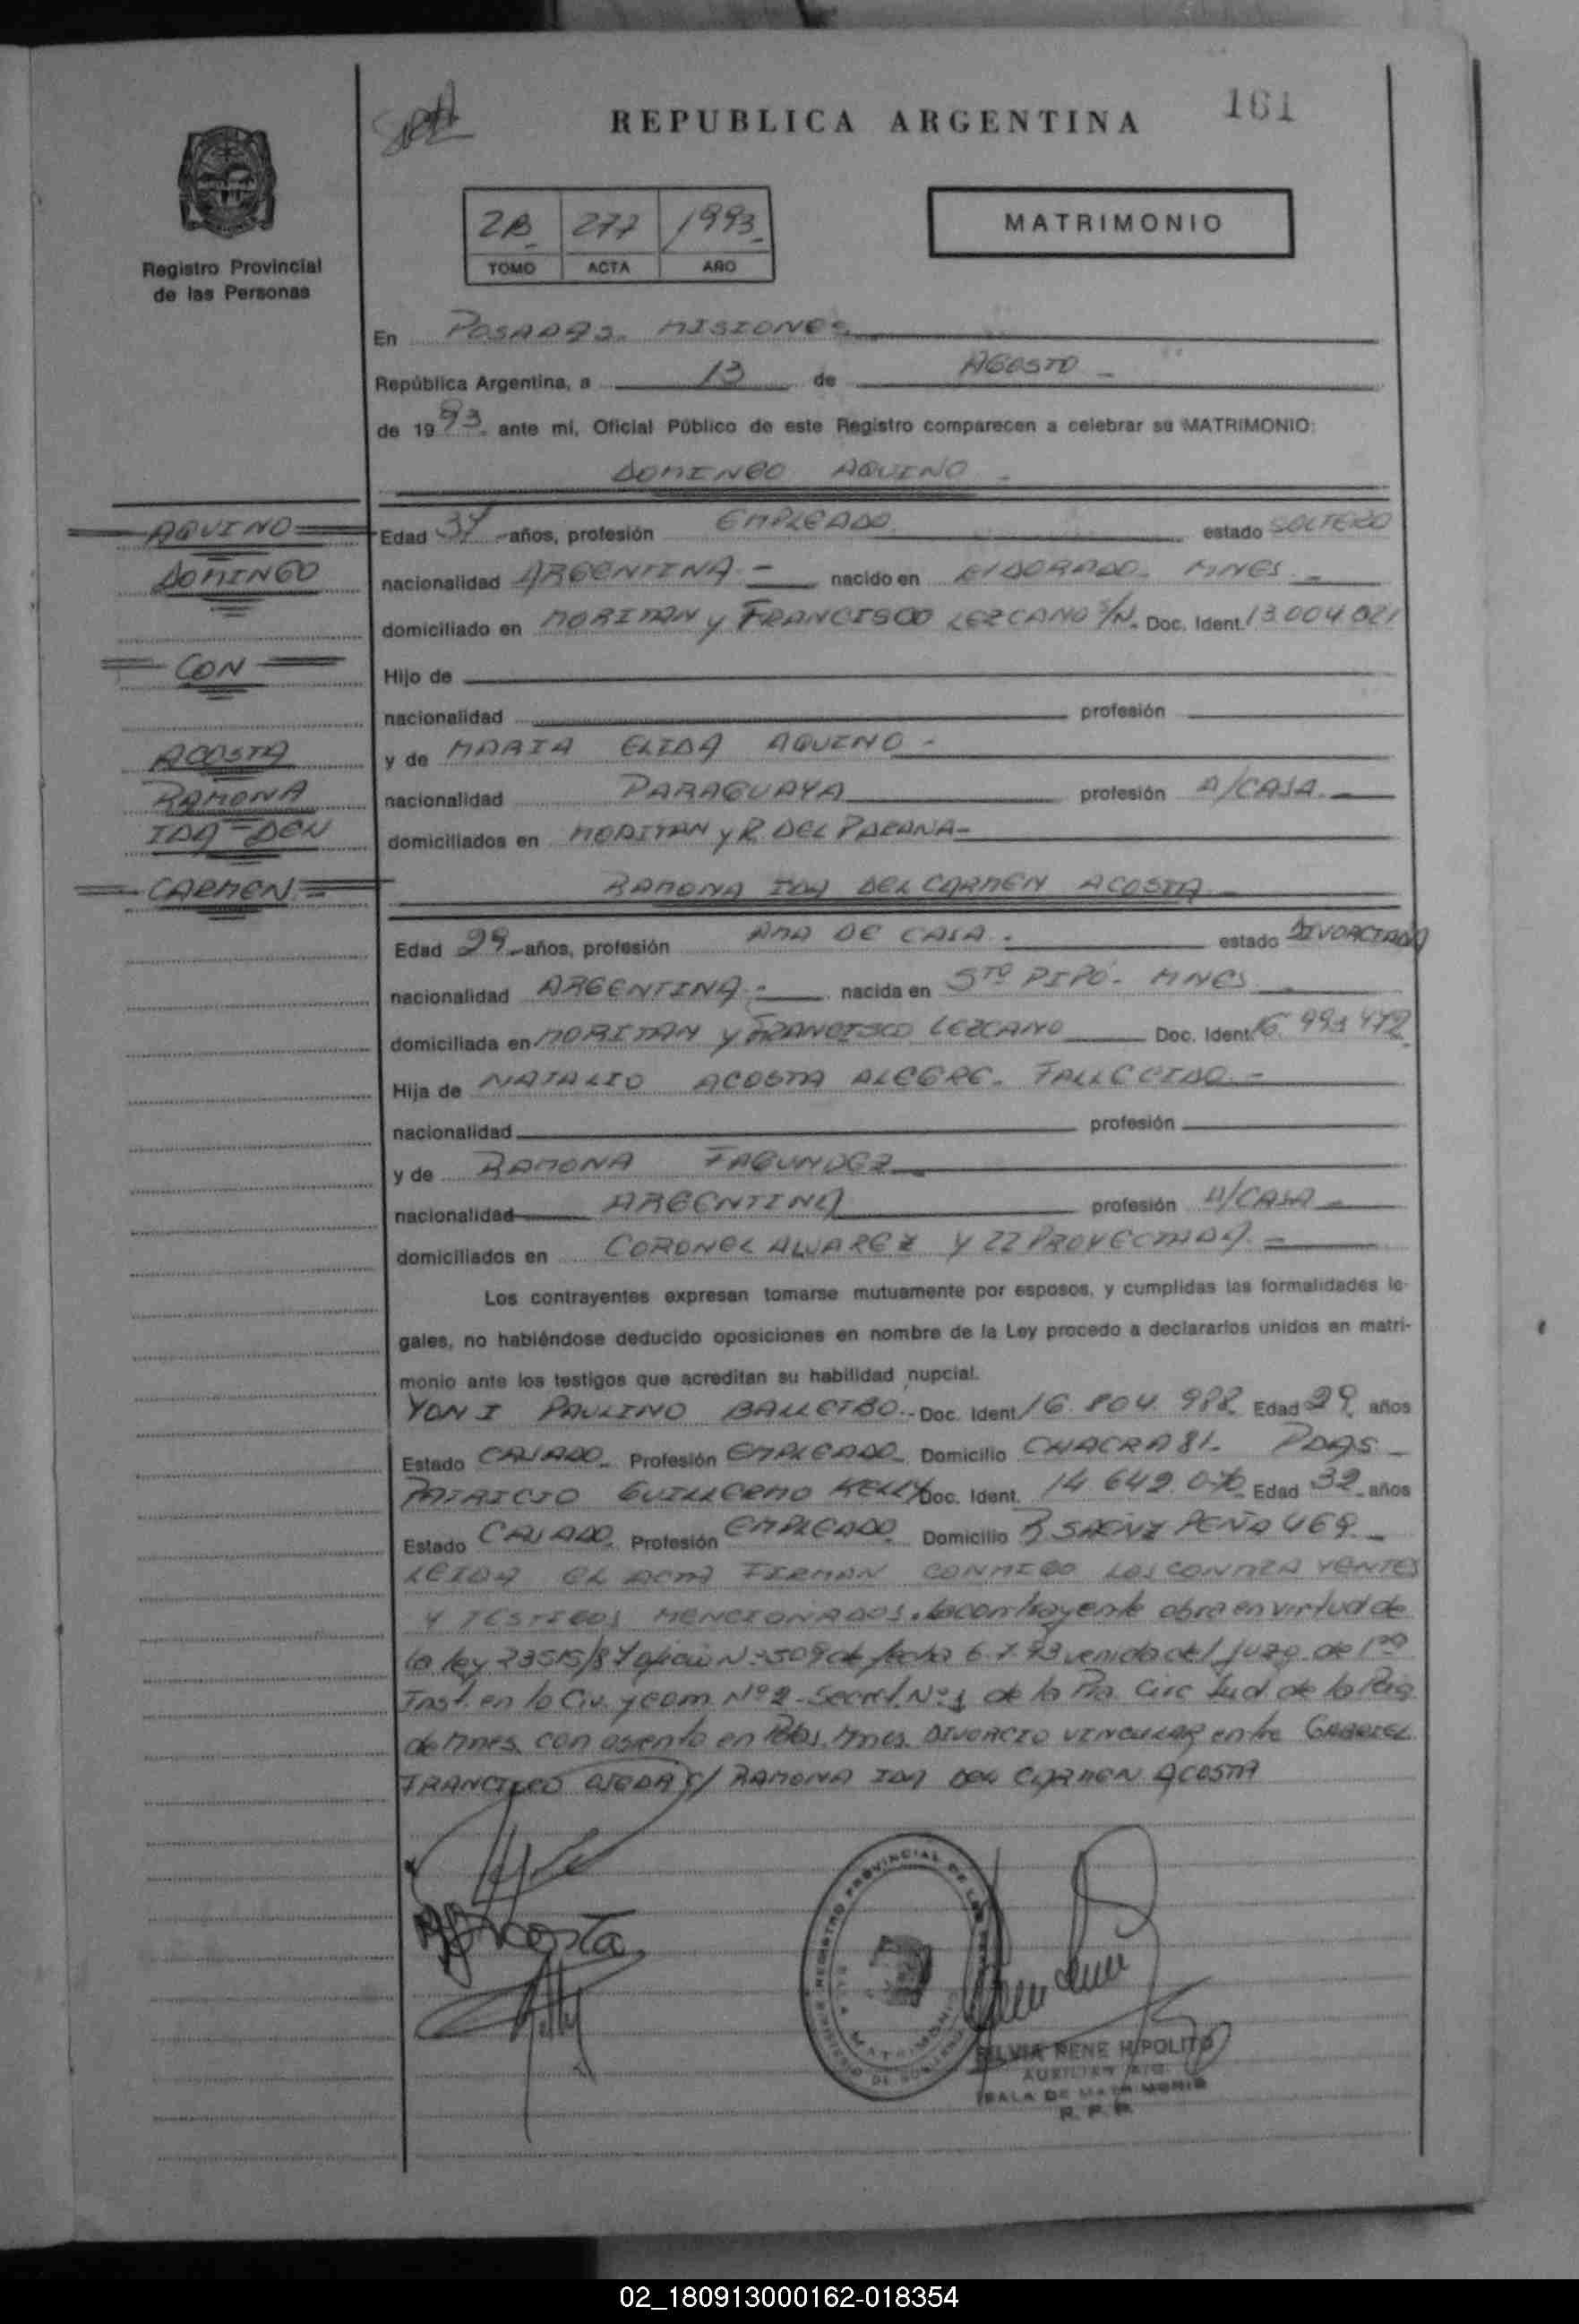 161
REPUBLICA ARGENTINA
2B 277 1993
TOMO ACTA AÑO
MATRIMONIO
Registro Provincial
de las Personas
En POSADAS - MISIONES
República Argentina, a 13 de AGOSTO
de 1993 ante mí, Oficial Público de este Registro comparecen a celebrar su MATRIMONIO:
DOMINGO AQUINO
AQUINO
DOMINGO
CON
ACOSTA
RAMONA
IDA DEL
CARMEN
Edad 37 años, profesión EMPLEADO estado SOLTERO
nacionalidad ARGENTINA nacido en ELDORADO - MNES
domiciliado en MORITAN y FRANCISCO LEZCANO S/N. Doc. Ident. 13.004.021
Hijo de
nacionalidad profesión
y de MARIA ELIDA AQUINO
nacionalidad PARAGUAYA profesión A/CASA
domiciliados en MORITAN y R. DEL PARANA
RAMONA IDA DEL CARMEN ACOSTA
Edad 29 años, profesión AMA DE CASA estado DIVORCIADA
nacionalidad ARGENTINA nacida en STO PIPÓ - MNES
domiciliada en MORITAN y FRANCISCO LEZCANO Doc. Ident. 16.993.472
Hija de NATALIO ACOSTA ALEGRE - FALLECIDO
nacionalidad profesión
y de RAMONA FAGUNDEZ
nacionalidad ARGENTINA profesión A/CASA
domiciliados en CORONEL ALVAREZ Y 22 PROYECTADA
Los contrayentes expresan tomarse mutuamente por esposos, y cumplidas las formalidades le-
gales, no habiéndose deducido oposiciones en nombre de la Ley procedo a declararlos unidos en matri-
monio ante los testigos que acreditan su habilidad nupcial.
YONI PAULINO BALLETBO Doc. Ident. 16.804.988 Edad 29 años
Estado CASADO Profesión EMPLEADO Domicilio CHACRA 81 - PDAS
PATRICIO GUILLERMO KELLY Doc. Ident. 14.649.070 Edad 32 años
Estado CASADO Profesión EMPLEADO Domicilio R SAENZ PEÑA 469
LEIDA EL ACTA FIRMAN CONMIGO LOS CONTRAYENTES
Y TESTIGOS MENCIONADOS. La contrayente obra en virtud de
la ley 23515/87 oficio Nº 509 de fecha 6.7.93 venido del Juzg. de 1ra
Inst. en lo Civ. y com. Nº 2 - Secret. Nº 1 de la Pra. Circ Jud. de la Pcia
de Mnes. con asiento en Pdas. Mnes. DIVORCIO VINCULAR entre GABRIEL
FRANCISCO OJEDA c/ RAMONA IDA DEL CARMEN ACOSTA
Acosta
REGISTRO PROVINCIAL DE LAS
MATRIMONIO
SILVIA RENE HIPOLITO
AUXILIAR
SALA DE MATRIMONIO
R. P. P.
02_180913000162-018354